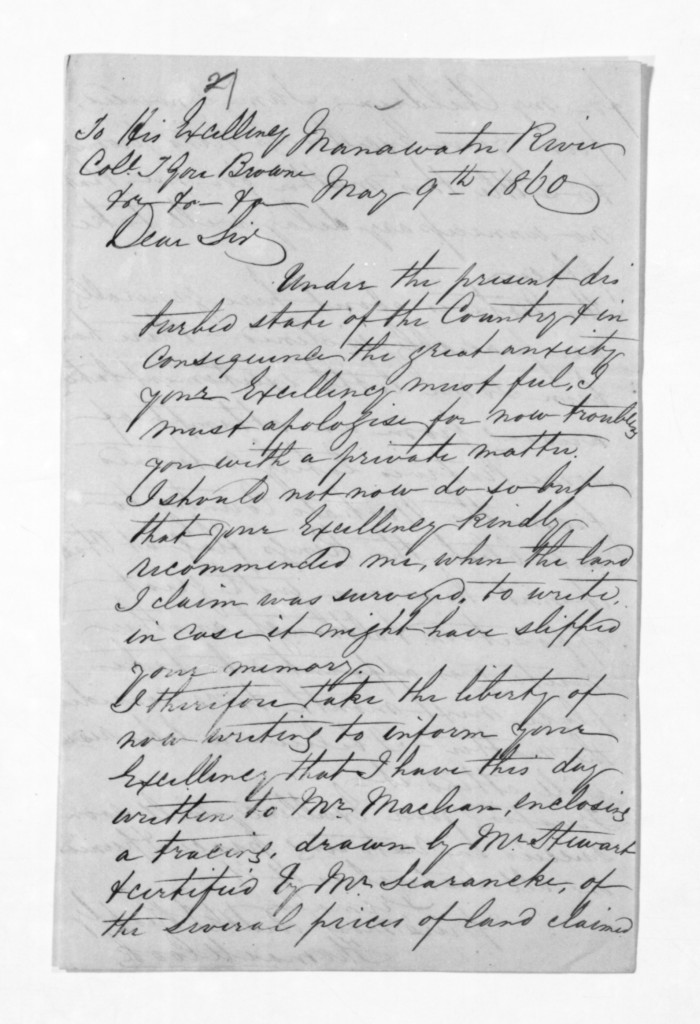 2/
To His Excellency
Manawatu River
Coll. T Gore Browne
&c &c &c
May 9th 1860
Dear Sir
Under the present dis
turbed state of the Country & in
consequence the great anxiety
your Excellency must feel, I
must apologise for now troubling
you with a private matter.
I should not now do so but
that your Excellency kindly
recommended me, when the land
I claim was surveyed, to write,
in case it might have slipped
your memory.
I therefore take the liberty of
now writing to inform your
Excellency that I have this day
written to Mr. Maclean, enclosing
a tracing, drawn by Mr. Stewart
& certified by Mr. Searancke, of
the several pieces of land claimed